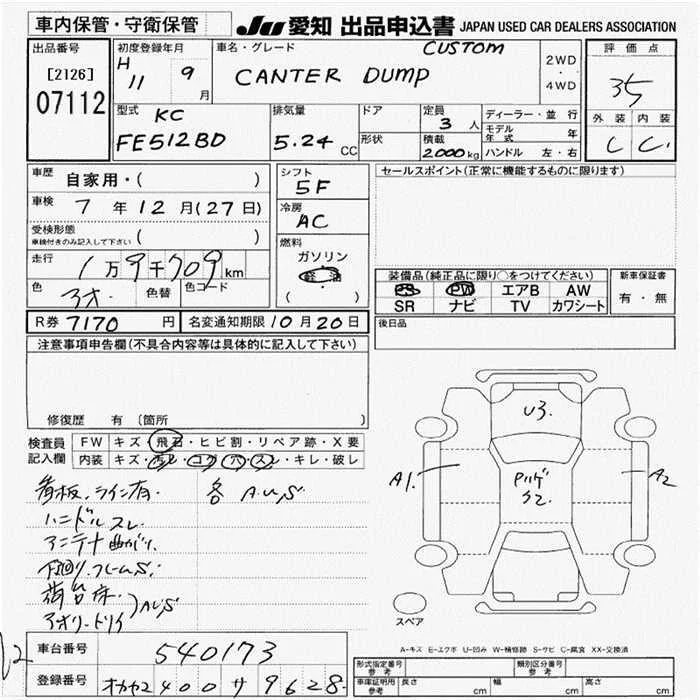 車内保管・守衛保管
JU 愛知 出品申込書 JAPAN USED CAR DEALERS ASSOCIATION
出品番号
[2126]
07112
初度登録年月
H 11 9月
車名・グレード
CUSTOM
CANTER DUMP
2WD
・
4WD
評価点
35
外装 内装
C C
型式 KC
FE512BD
排気量
5.24 CC
ドア
形状
定員
3 人
積載
2000kg
ディーラー・並行
モデル年式 年
ハンドル 左・右
車歴 自家用・( )
車検 7年12月(27日)
受検形態
車検付きのみ記入して下さい ( )
走行 1万9千709km
色 アオ. 色替 色コード
R券 7170 円 名変通知期限 10月20日
シフト
5F
冷房
AC
燃料
ガソリン
軽油
( )
セールスポイント(正常に機能するものに限ります)
装備品(純正品に限り○をつけてください)
PS PW エアB AW
SR ナビ TV カワシート
新車保証書
有・無
後日品
注意事項申告欄(不具合内容等は具体的に記入して下さい)
修復歴 有〔箇所 〕
検査員記入欄
FW キズ・飛石・ヒビ割・リペア跡・X要
内装 キズ・汚レ・コゲ・穴・スレ・キレ・破レ
看板.ライン有. 各 A.U.S
ハンドルスレ.
アンテナ曲がり.
下回り.フレームS.
荷台床.
アオリ・トリイ A.U.S
U3.
A1.
A2
S2.
スペア
A-キズ E-エクボ U-凹み W-補修跡 S-サビ C-腐食 XX-交換済
車台番号 540173
登録番号 400 サ 9628
形式指定番号 参考
類別区分番号 参考
車庫証明用 参考 長さ cm 幅 cm 高さ cm